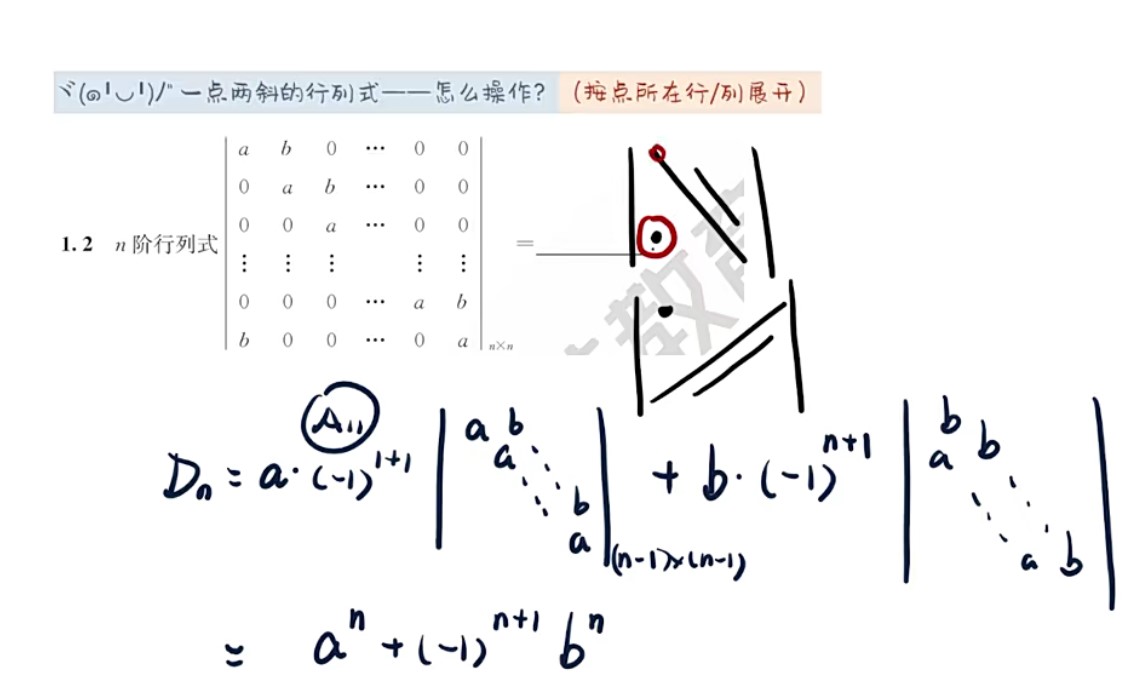 ヾ(๑╹◡╹)ﾉ" 一点两斜的行列式——怎么操作？（按点所在行/列展开）
a b 0 ⋯ 0 0
0 a b ⋯ 0 0
0 0 a ⋯ 0 0
1.2 n 阶行列式 =
⋮ ⋮ ⋮ ⋮ ⋮
0 0 0 ⋯ a b
b 0 0 ⋯ 0 a
n×n
教育
A₁₁
Dₙ = a·(-1)¹⁺¹ | a b a ⋱ ⋱ b a |(n-1)×(n-1) + b·(-1)ⁿ⁺¹ | b a b ⋱ ⋱ a b |
= aⁿ + (-1)ⁿ⁺¹ bⁿ